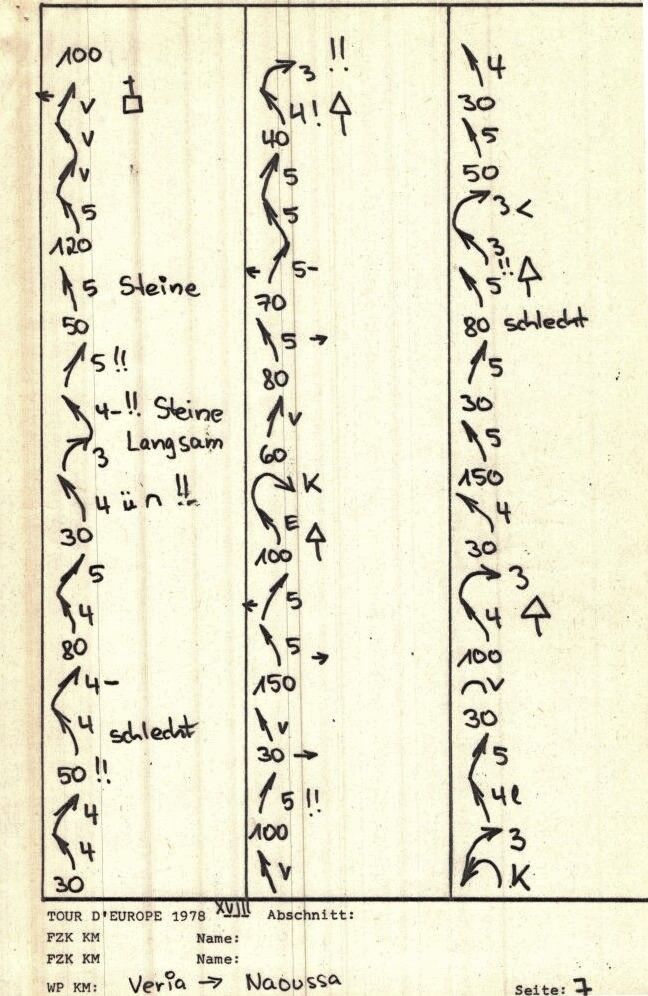 100
V
V
V
5
120
5 Steine
50
5 !!
4- !! Steine
Langsam
3
4 ü n !!
30
5
4
80
4-
4 schlecht
50 !!
4
4
30
3 !!
4!
40
5
5
5-
70
5 →
80
V
60
K
E
100
5
5 →
150
V
30 →
5 !!
100
V
4
30
5
50
3 <
3
5 !!
80 schlecht
5
30
5
150
4
30
3
4
100
V
30
5
4l
3
K
TOUR D'EUROPE 1978 XVIII Abschnitt:
FZK KM Name:
FZK KM Name:
WP KM: Veria → Naoussa Seite: 7